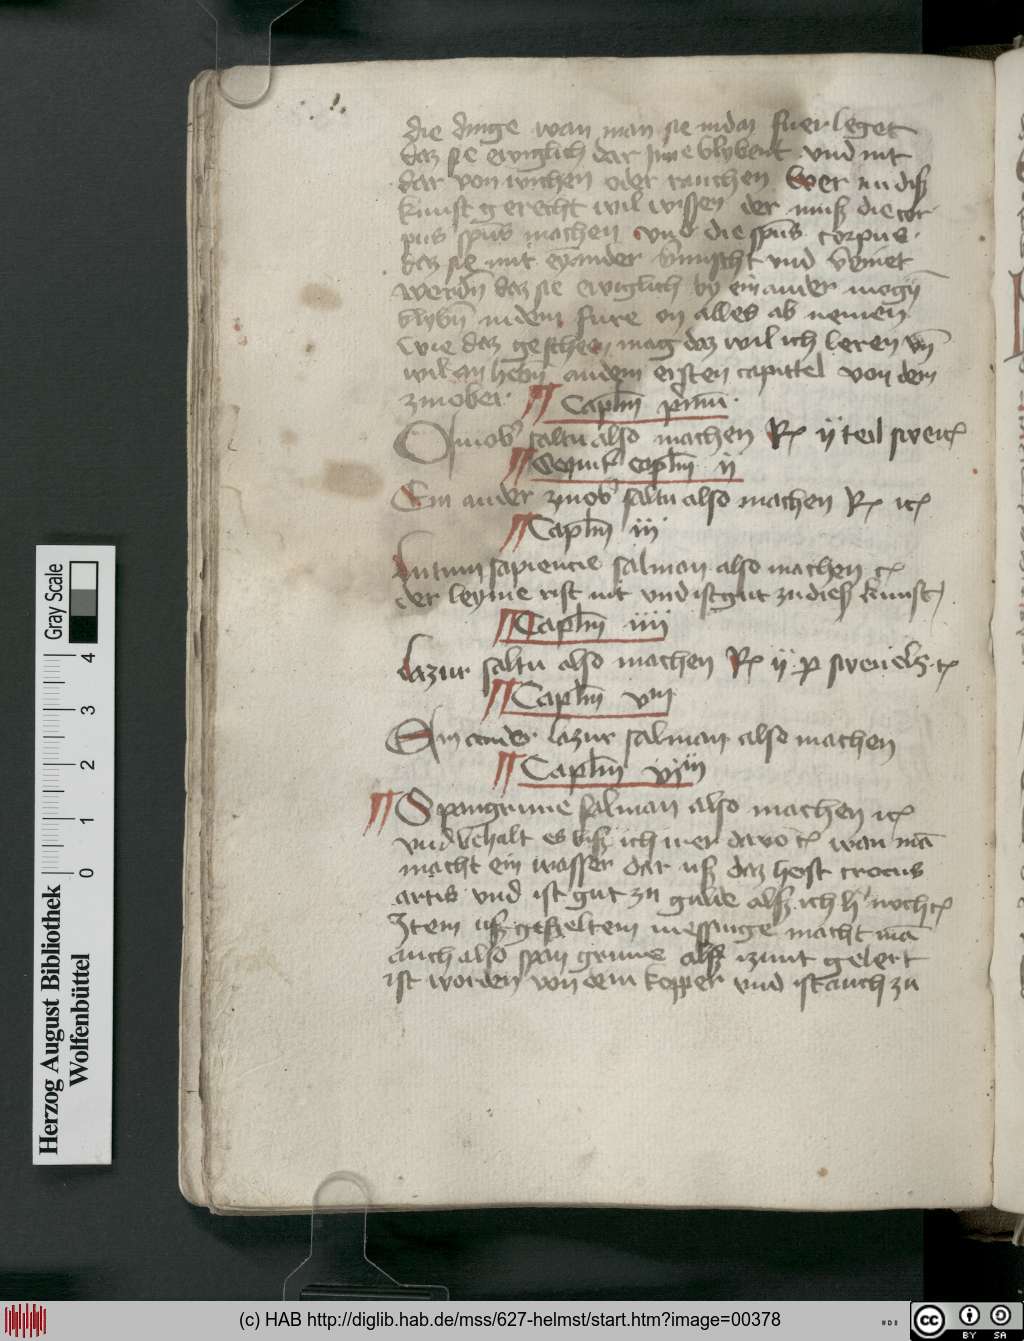 die dinge wan man sie in daz fuer leget
daz sie ewiglich dar jnne blybent vnd nit
dar von wichen oder rauchen Wer nu diß
kunst gerecht wil wissen der muß die cor
pus spūs machen vnd die spūs corpus
daz sie mit eynander v̄mischt vnd v̄einet
werdn̄ daz sie ewiglich by ein ander mogn̄
blybn̄ in dem fure on alles ab nemen
Wie daz gescheen mag daz wil ich leren vn̄
wil an hebn̄ an dem ersten capittel von dem
zinober
Caplm̄ primū
saltu also machen Rꝫ ij teil
Sequit᷑ caplm̄ ij
Ein ander zinob᷑ saltu also machen Rꝫ ⁊cꝫ
Caplm̄ iij
lutum sapiencie salman also machen ⁊cꝫ
der leyme rist nit vnd ist gut zu dieß kunst
Caplm̄ iiij
lazur saltu also machen Rꝫ ij p swebelz ⁊cꝫ
Caplm̄ viij
Ein ander lazur salman also machen
Caplm̄
Spangrune salman also machen ⁊cꝫ
vnd behalt es biß ich wan mā
macht ein wasser dar uß daz heist crocus
artis vnd ist gut zu alß ich
Item uß messinge macht mā
auch also span grune alß izunt gelert
ist worden von dem kopper vnd ist auch zu
Herzog August Bibliothek
Wolfenbüttel
0 1 2 3 4
Gray Scale
(c) HAB http://diglib.hab.de/mss/627-helmst/start.htm?image=00378
cc BY SA